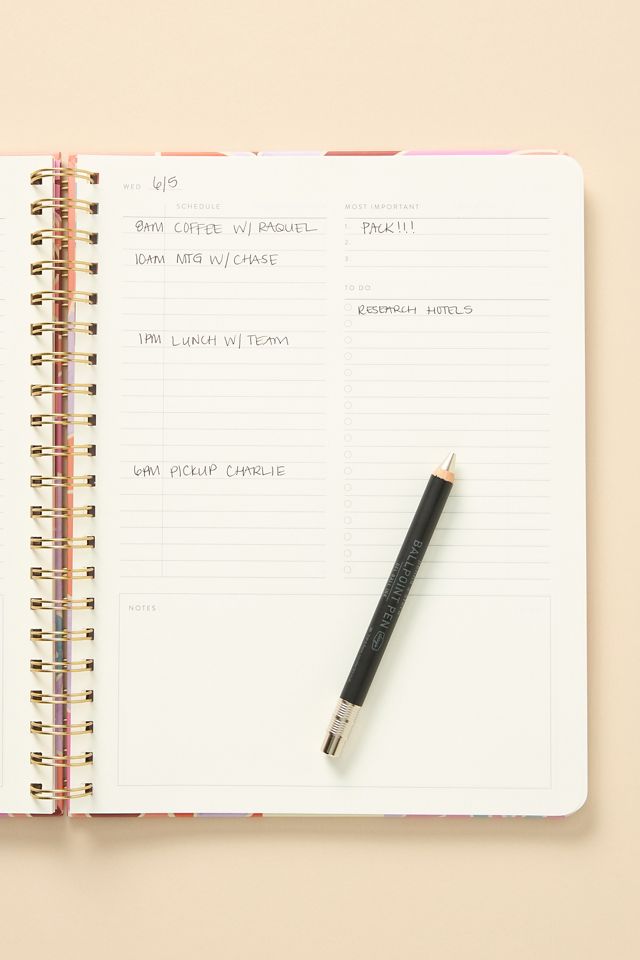 WED 6/5
SCHEDULE
8AM COFFEE W/ RAQUEL
10AM MTG W/ CHASE
1PM LUNCH W/ TEAM
6PM PICKUP CHARLIE
MOST IMPORTANT
1. PACK!!!
2.
3.
TO DO
RESEARCH HOTELS
NOTES
BALLPOINT PEN